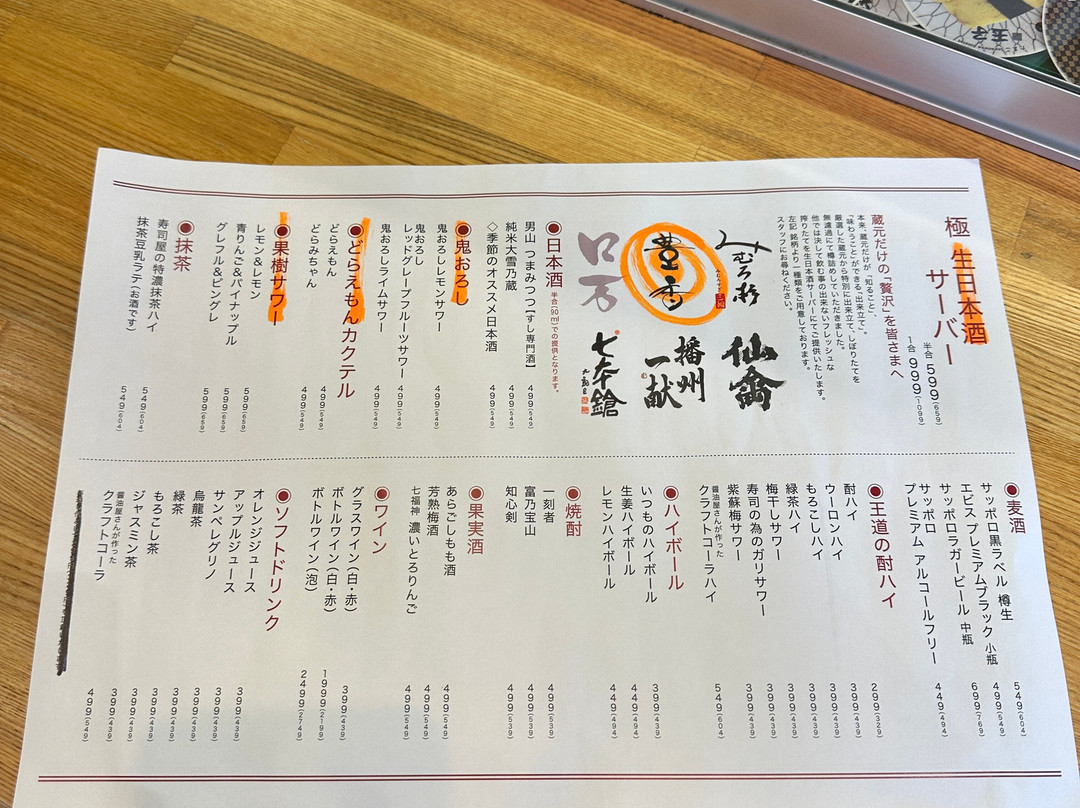 極 生日本酒
サーバー
半合 599(659)
1合 999(1099)
蔵元だけの“贅沢”を皆さまへ
本来、蔵元だけが「知ること」、
「味わうこと」ができる「出来立て」。
厳選した蔵元から特別に出来立て、しぼりたてを
無濾過にて樽詰めしていただきました。
他では決して飲む事の出来ないフレッシュな
搾りたてを生日本酒サーバーにてご提供いたします。
左記 銘柄より一種類をご用意しております。
スタッフにお尋ねください。
みむろ杉
仙禽
豊香
播州
一献
ロ万
七本鎗
●日本酒 半合(90ml)での提供となります。
男山 つまみつつ【すし専門酒】 499(549)
純米大雪乃蔵 499(549)
◇季節のオススメ日本酒 499(549)
●鬼おろし
鬼おろしレモンサワー 499(549)
鬼おろし
レッドグレープフルーツサワー 499(549)
鬼おろしライムサワー 499(549)
●どらえもんカクテル
どらえもん 499(549)
どらみちゃん 499(549)
●果樹サワー
レモン&レモン 599(659)
青りんご&パイナップル 599(659)
グレフル&ピングレ 599(659)
●抹茶
寿司屋の特濃抹茶ハイ 549(604)
抹茶豆乳ラテ(お酒です) 549(604)
●麦酒
サッポロ黒ラベル 樽生 549(604)
エビス プレミアムブラック 小瓶 499(549)
サッポロラガービール 中瓶 699(769)
サッポロ
プレミアム アルコールフリー 449(494)
●王道の酎ハイ
酎ハイ 299(329)
ウーロンハイ 399(439)
もろこしハイ 399(439)
緑茶ハイ 399(439)
梅干しサワー 399(439)
寿司の為のガリサワー 399(439)
紫蘇梅サワー 399(439)
醤油屋さんが作った
クラフトコーラハイ 549(604)
●ハイボール
いつものハイボール 399(439)
生姜ハイボール 449(494)
レモンハイボール 449(494)
●焼酎
一刻者 499(539)
富乃宝山 499(539)
知心剣 499(539)
●果実酒
あらごしもも酒 499(549)
芳熟梅酒 499(549)
七福神 濃いとろりんご 499(549)
●ワイン
グラスワイン(白・赤) 399(439)
ボトルワイン(白・赤) 1999(2199)
ボトルワイン(泡) 2499(2749)
●ソフトドリンク
オレンジジュース 399(439)
アップルジュース 399(439)
サンペレグリノ 399(439)
烏龍茶 399(439)
緑茶 399(439)
もろこし茶 399(439)
ジャスミン茶 399(439)
醤油屋さんが作った
クラフトコーラ 499(549)